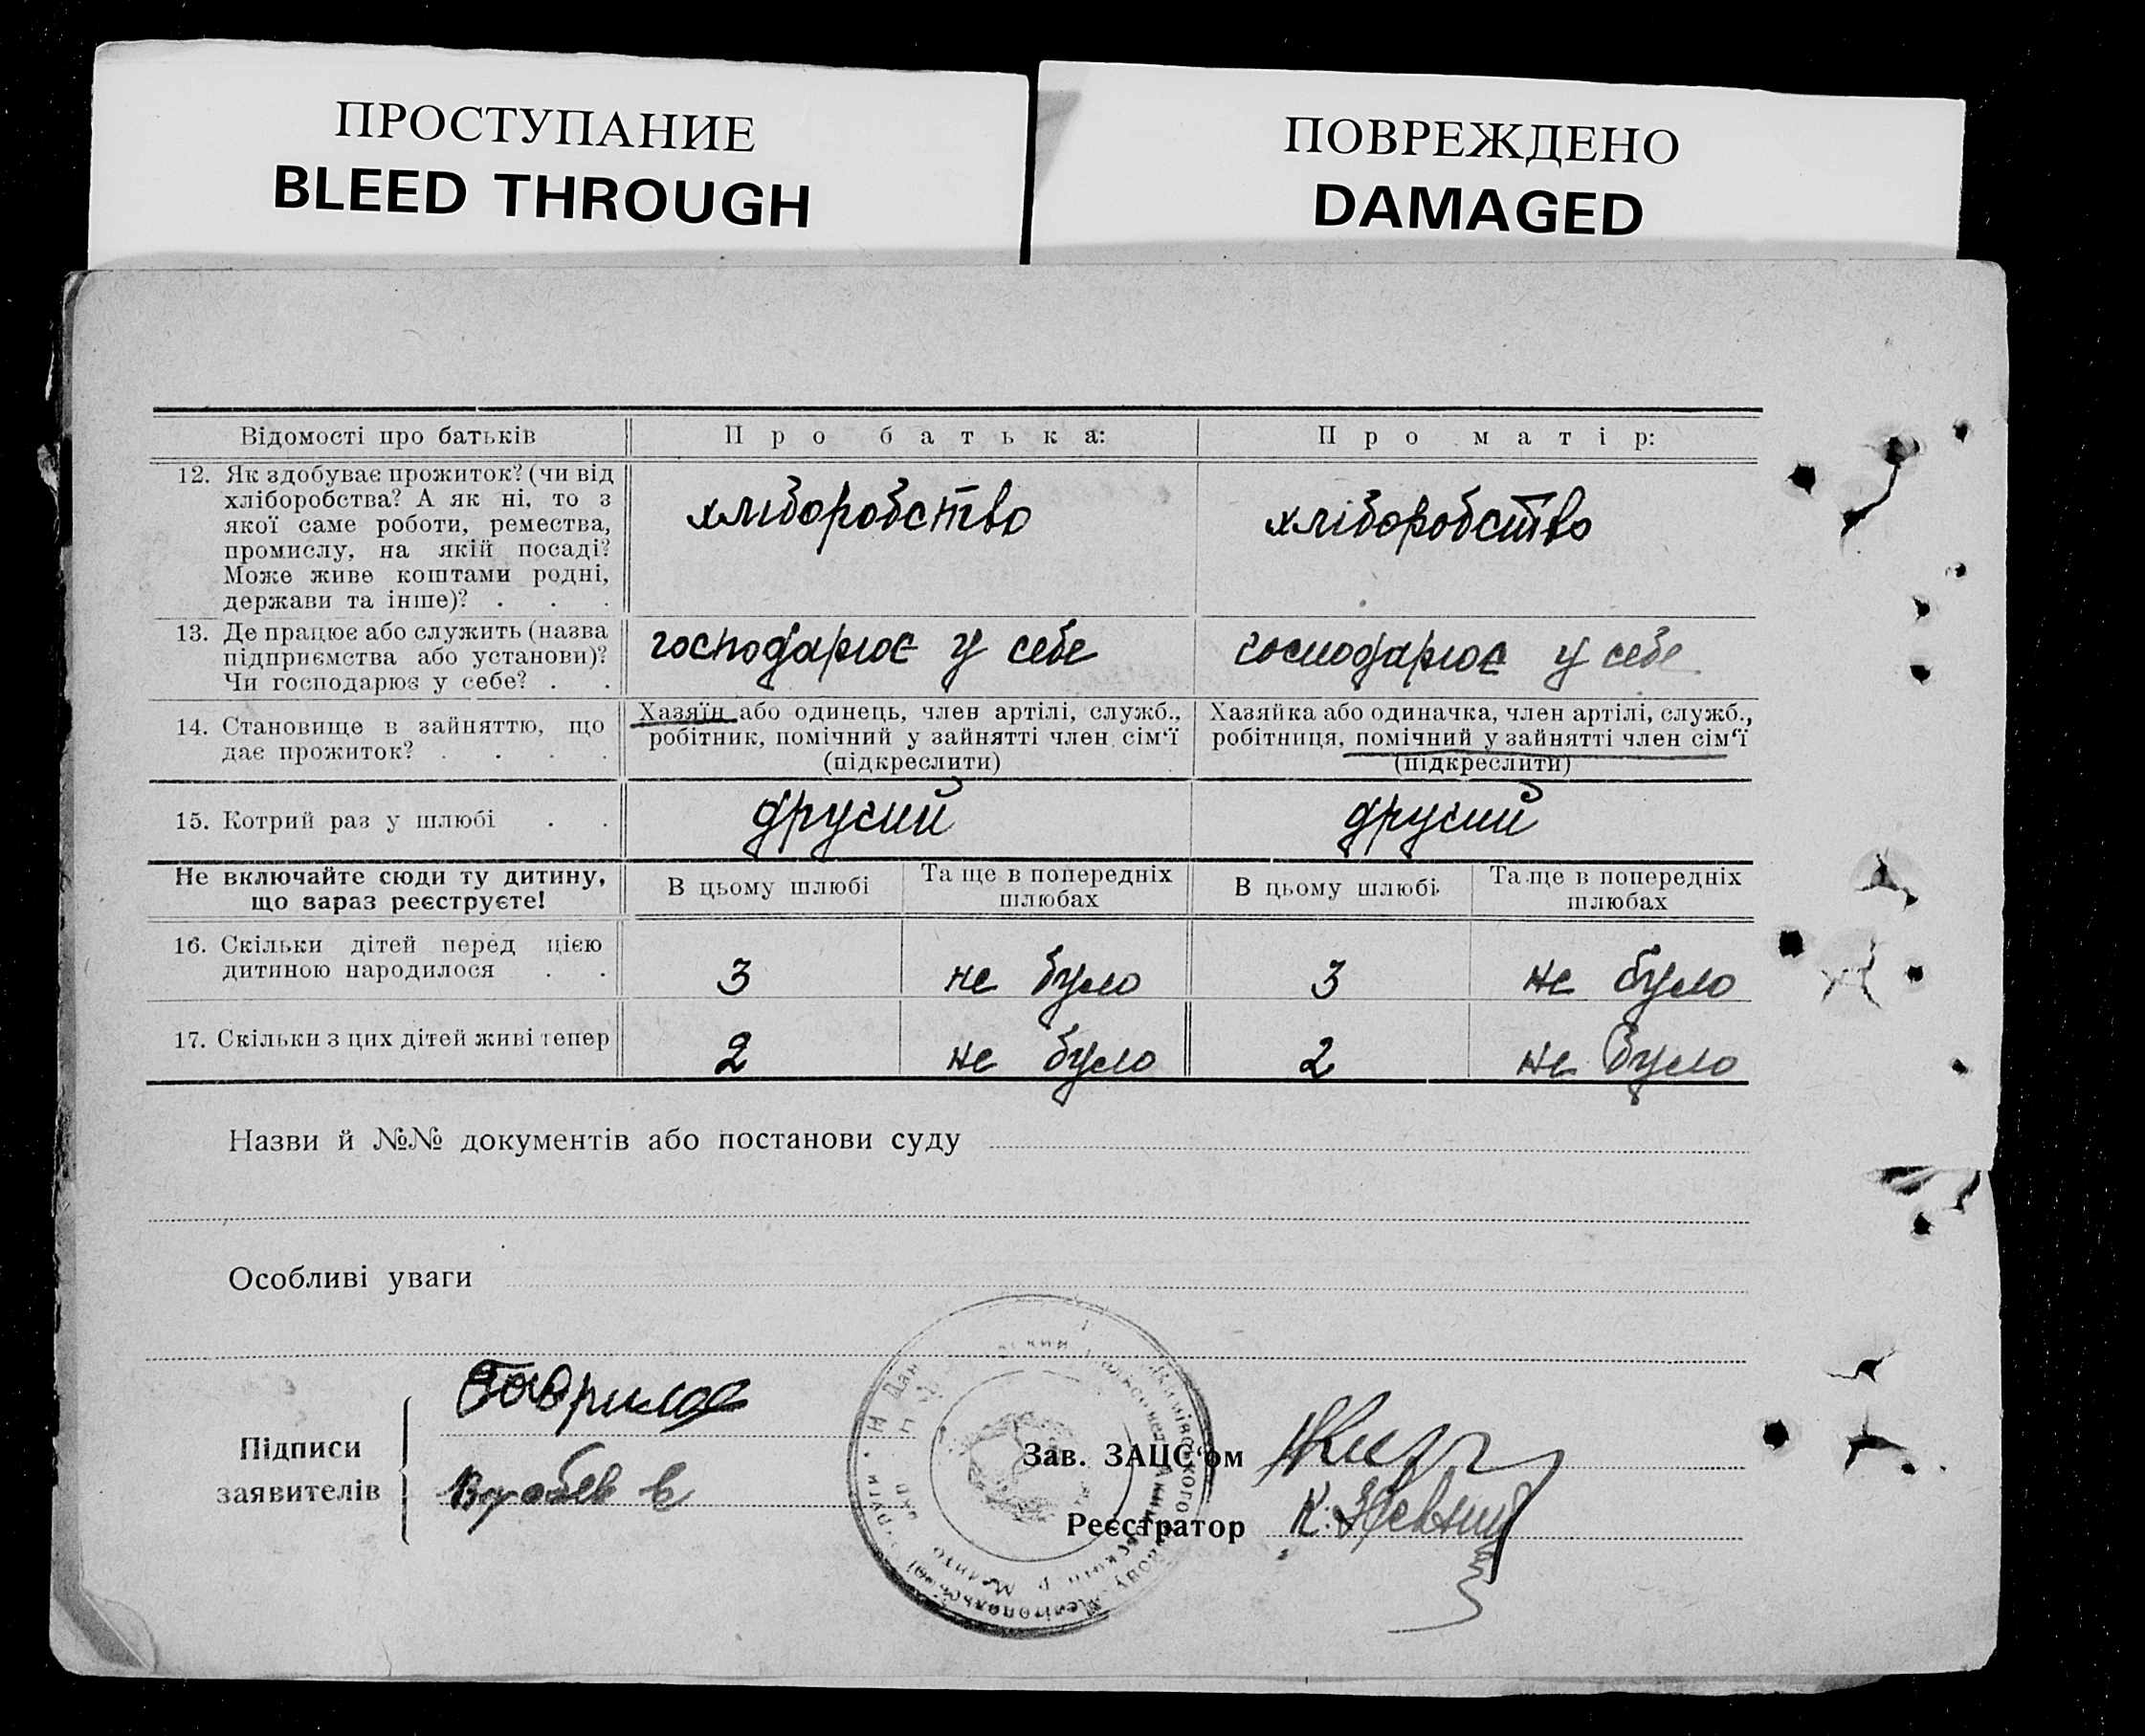 ПРОСТУПАНИЕ
BLEED THROUGH
ПОВРЕЖДЕНО
DAMAGED
Відомості про батьків
Про батька:
Про матір:
12. Як здобуває прожиток? (чи від
хліборобства? А як ні, то з
якої саме роботи, ремества,
промислу, на якій посаді?
Може живе коштами родні,
держави та інше)? . . .
хліборобство
хліборобство
13. Де працює або служить (назва
підприємства або установи)?
Чи господарює у себе? . .
господарює у себе
господарює у себе
14. Становище в зайняттю, що
дає прожиток? . . . .
Хазяїн або одинець, член артілі, служб.,
робітник, помічний у зайнятті член сім‘ї
(підкреслити)
Хазяйка або одиначка, член артілі, служб.,
робітниця, помічний у зайнятті член сім‘ї
(підкреслити)
15. Котрий раз у шлюбі . .
другий
другий
Не включайте сюди ту дитину,
що зараз реєструєте!
В цьому шлюбі
Та ще в попередніх
шлюбах
В цьому шлюбі
Та ще в попередніх
шлюбах
16. Скільки дітей перед цією
дитиною народилося . .
3
не було
3
не було
17. Скільки з цих дітей живі тепер
2
не було
2
не було
Назви й №№ документів або постанови суду
Особливі уваги
Підписи
заявителів
Гаврилов
Зав. ЗАЦС‘ом
Реєстратор
К.
Мелітопольської